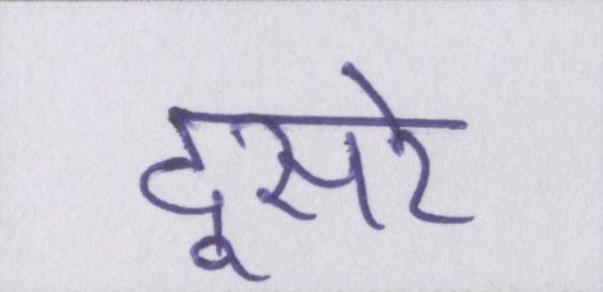 दूसरे